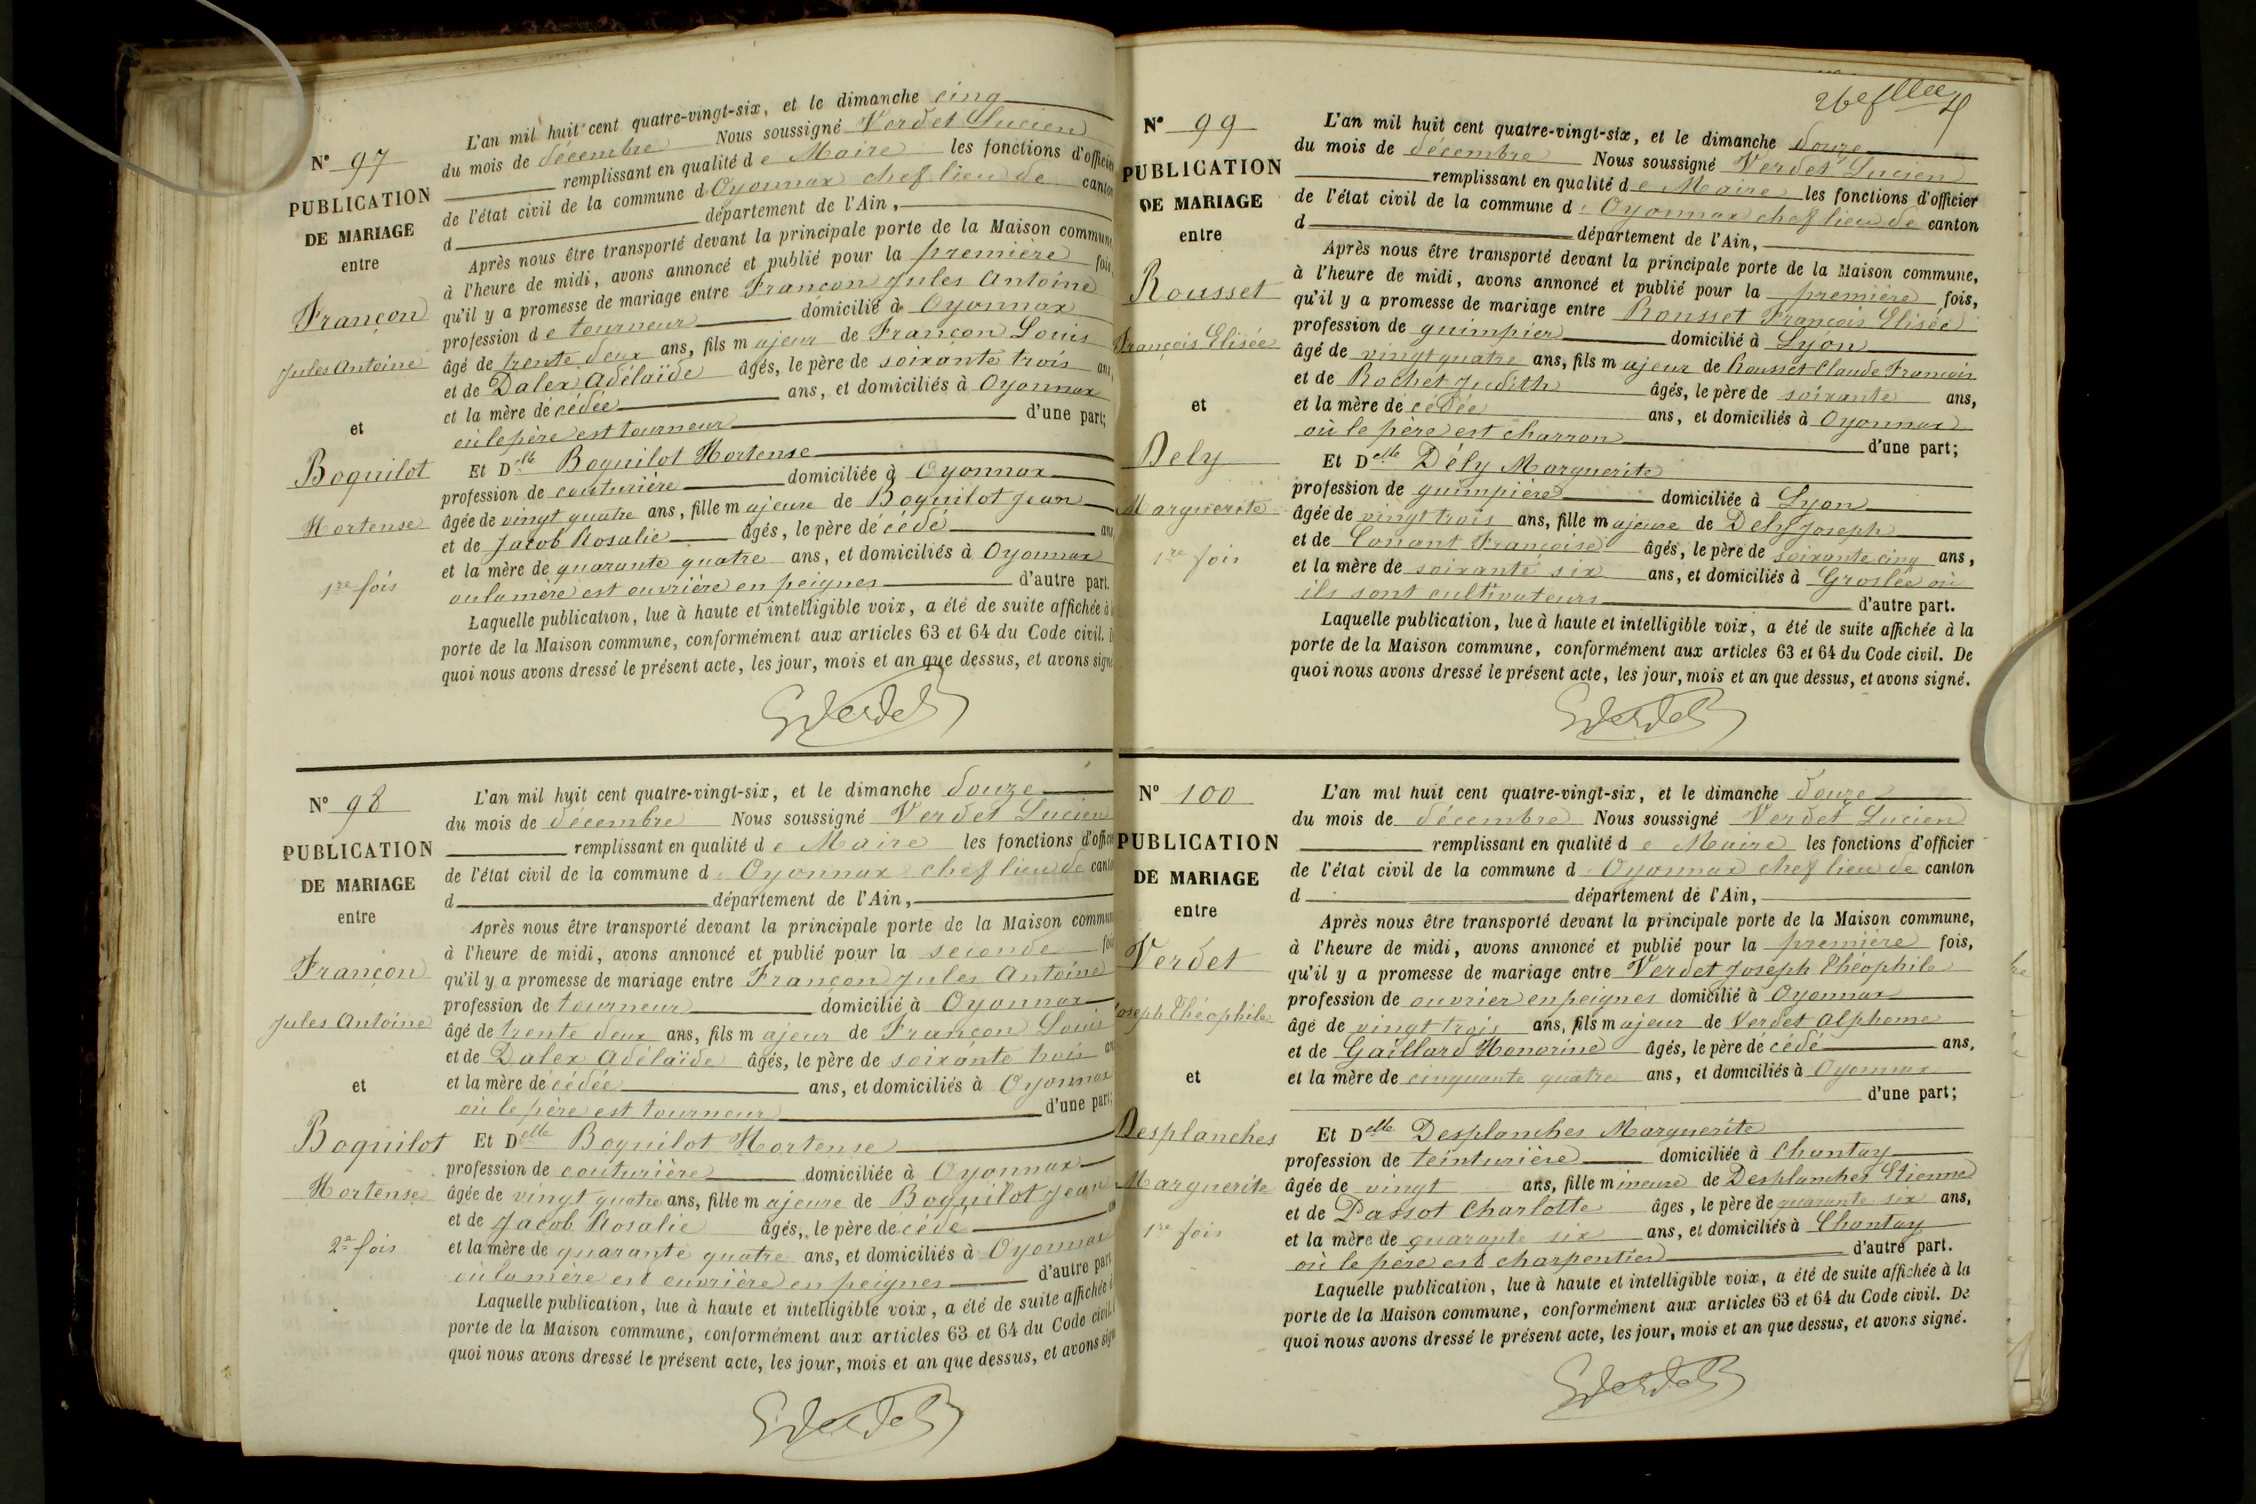 N° 97
PUBLICATION
DE MARIAGE
entre
Françon
Jules Antoine
et
Boquilot
Hortense
1re fois
L'an mil huit cent quatre-vingt-six, et le dimanche cinq
du mois de décembre Nous soussigné Verdet Lucien
remplissant en qualité de Maire les fonctions d'officier
de l'état civil de la commune d'Oyonnax chef lieu de canton
d département de l'Ain,
Après nous être transporté devant la principale porte de la Maison commune,
à l'heure de midi, avons annoncé et publié pour la première fois,
qu'il y a promesse de mariage entre Françon Jules Antoine
profession de tourneur domicilié à Oyonnax
âgé de trente deux ans, fils majeur de Françon Louis
et de Dalex Adélaïde âgés, le père de soixante trois ans,
et la mère décédée ans, et domiciliés à Oyonnax
où le père est tourneur d'une part;
Et Delle Boquilot Hortense
profession de couturière domiciliée à Oyonnax
âgée de vingt quatre ans, fille majeure de Boquilot Jean
et de Jacob Rosalie âgés, le père décédé ans
et la mère de quarante quatre ans, et domiciliés à Oyonnax
où la mère est ouvrière en peignes d'autre part.
Laquelle publication, lue à haute et intelligible voix, a été de suite affichée à
porte de la Maison commune, conformément aux articles 63 et 64 du Code civil.
quoi nous avons dressé le présent acte, les jour, mois et an que dessus, et avons signé
N° 98
PUBLICATION
DE MARIAGE
entre
Françon
Jules Antoine
et
Boquilot
Hortense
2e fois
L'an mil huit cent quatre-vingt-six, et le dimanche douze
du mois de décembre Nous soussigné Verdet Lucien
remplissant en qualité de Maire les fonctions d'officier
de l'état civil de la commune d'Oyonnax chef lieu de canton
d département de l'Ain,
Après nous être transporté devant la principale porte de la Maison commun
à l'heure de midi, avons annoncé et publié pour la seconde fois
qu'il y a promesse de mariage entre Françon Jules Antoine
profession de tourneur domicilié à Oyonnax
âgé de trente deux ans, fils majeur de Françon Louis
et de Dalex Adélaïde âgés, le père de soixante trois an
et la mère décédée ans, et domiciliés à Oyonnax
où le père est tourneur d'une part;
Et Delle Boquilot Hortense
profession de couturière domiciliée à Oyonnax
âgée de vingt quatre ans, fille majeure de Boquilot Jean
et de Jacob Rosalie âgés, le père décédé an
et la mère de quarante quatre ans, et domiciliés à Oyonnax
où la mère est ouvrière en peignes d'autre part
Laquelle publication, lue à haute et intelligible voix, a été de suite affichée à
porte de la Maison commune, conformément aux articles 63 et 64 du Code civil.
quoi nous avons dressé le présent acte, les jour, mois et an que dessus, et avons sign
N° 99
PUBLICATION
DE MARIAGE
entre
Rousset
François Elisée
et
Dely
Marguerite
1re fois
L'an mil huit cent quatre-vingt-six, et le dimanche douze
du mois de décembre Nous soussigné Verdet Lucien
remplissant en qualité de Maire les fonctions d'officier
de l'état civil de la commune d'Oyonnax chef lieu de canton
d département de l'Ain,
Après nous être transporté devant la principale porte de la Maison commune,
à l'heure de midi, avons annoncé et publié pour la première fois,
qu'il y a promesse de mariage entre Rousset François Elisée
profession de guimpier domicilié à Lyon
âgé de vingt quatre ans, fils majeur de Rousset Claude François
et de Rochet Judith âgés, le père de soixante ans,
et la mère décédée ans, et domiciliés à Oyonnax
où le père est charron d'une part;
Et Delle Dély Marguerite
profession de guimpière domiciliée à Lyon
âgée de vingt trois ans, fille majeure de Dely Joseph
et de Conant Françoise âgés, le père de soixante cinq ans,
et la mère de soixante six ans, et domiciliés à Groslée où
ils sont cultivateurs d'autre part.
Laquelle publication, lue à haute et intelligible voix, a été de suite affichée à la
porte de la Maison commune, conformément aux articles 63 et 64 du Code civil. De
quoi nous avons dressé le présent acte, les jour, mois et an que dessus, et avons signé.
N° 100
PUBLICATION
DE MARIAGE
entre
Verdet
Joseph Théophile
et
Desplanches
Marguerite
1re fois
L'an mil huit cent quatre-vingt-six, et le dimanche douze
du mois de décembre Nous soussigné Verdet Lucien
remplissant en qualité de Maire les fonctions d'officier
de l'état civil de la commune d'Oyonnax chef lieu de canton
d département de l'Ain,
Après nous être transporté devant la principale porte de la Maison commune,
à l'heure de midi, avons annoncé et publié pour la première fois,
qu'il y a promesse de mariage entre Verdet Joseph Théophile
profession de ouvrier en peignes domicilié à Oyonnax
âgé de vingt trois ans, fils majeur de Verdet Alphonse
et de Gaillard Honorine âgés, le père décédé ans,
et la mère de cinquante quatre ans, et domiciliés à Oyonnax
d'une part;
Et Delle Desplanches Marguerite
profession de teinturière domiciliée à Chantay
âgée de vingt ans, fille mineure de Desplanches Etienne
et de Passot Charlotte âgés, le père de quarante six ans,
et la mère de quarante six ans, et domiciliés à Chantay
où le père est charpentier d'autre part.
Laquelle publication, lue à haute et intelligible voix, a été de suite affichée à la
porte de la Maison commune, conformément aux articles 63 et 64 du Code civil. De
quoi nous avons dressé le présent acte, les jour, mois et an que dessus, et avons signé.